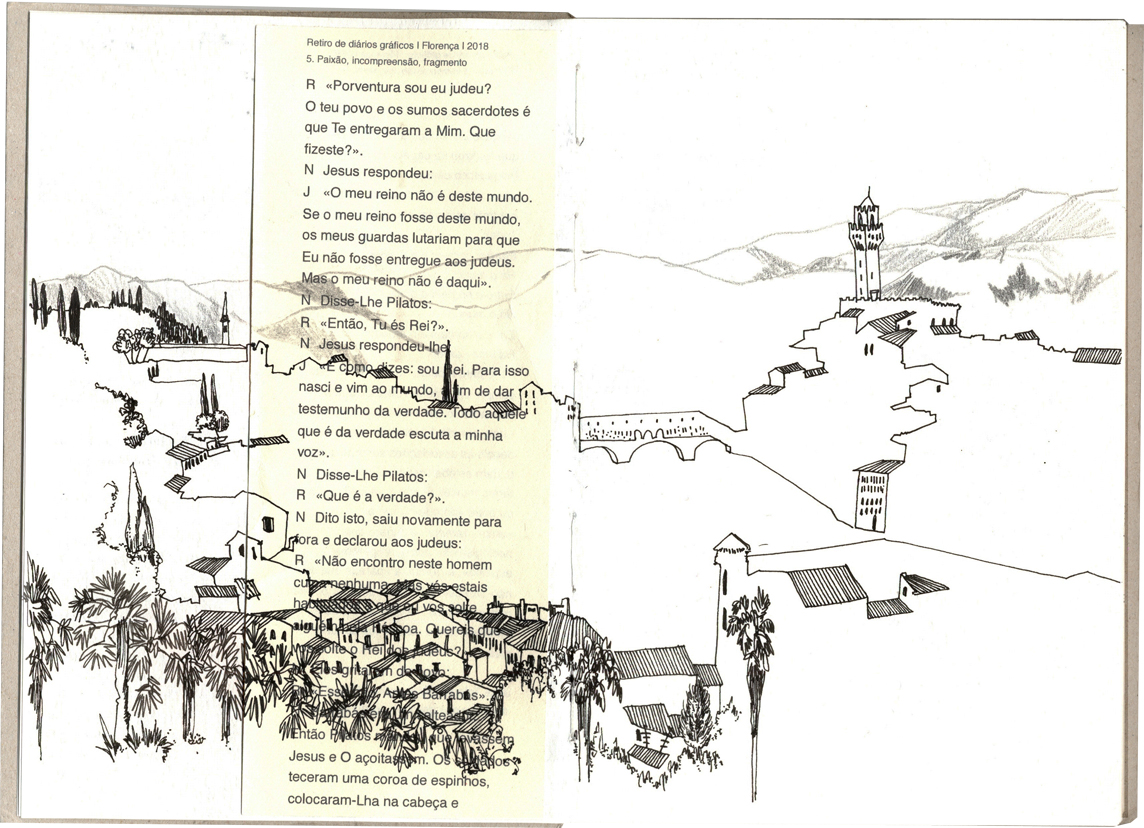 Retiro de diários gráficos I Florença I 2018
5. Paixão, incompreensão, fragmento
R «Porventura sou eu judeu?
O teu povo e os sumos sacerdotes é
que Te entregaram a Mim. Que
fizeste?».
N Jesus respondeu:
J «O meu reino não é deste mundo.
Se o meu reino fosse deste mundo,
os meus guardas lutariam para que
Eu não fosse entregue aos judeus.
Mas o meu reino não é daqui».
N Disse-Lhe Pilatos:
R «Então, Tu és Rei?».
N Jesus respondeu-lhe:
J «É como dizes: sou Rei. Para isso
nasci e vim ao mundo, a fim de dar
testemunho da verdade. Todo aquele
que é da verdade escuta a minha
voz».
N Disse-Lhe Pilatos:
R «Que é a verdade?».
N Dito isto, saiu novamente para
fora e declarou aos judeus:
R «Não encontro neste homem
culpa nenhuma. Mas vós estais
que eu vos solte
Quereis que
solte o Rei dos judeus?
gritaram de novo:
Barrabás».
Então Pilatos que
Jesus e O açoitassem. Os soldados
teceram uma coroa de espinhos,
colocaram-Lha na cabeça e